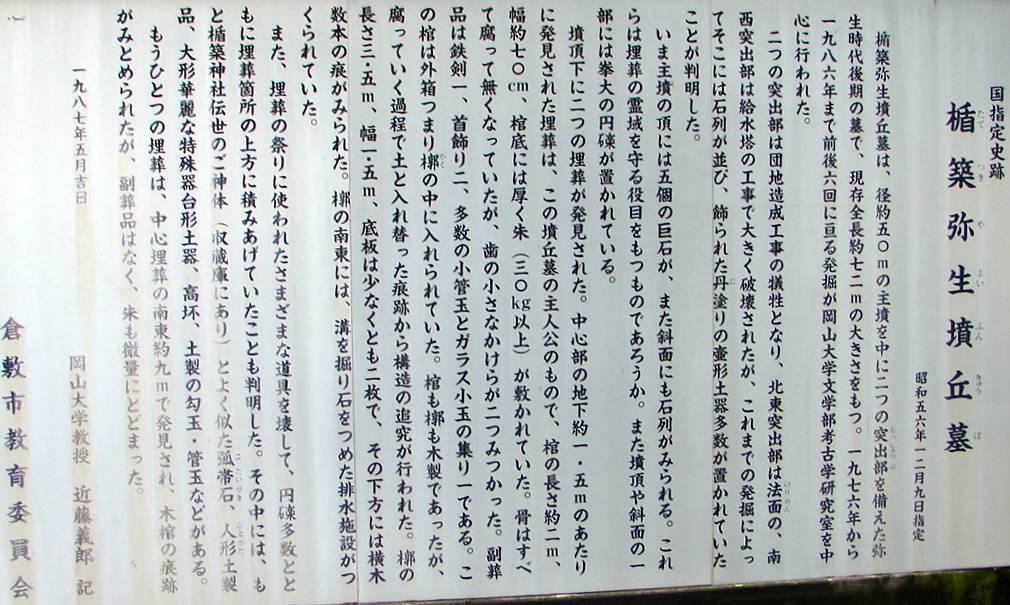 国指定史跡
楯築弥生墳丘墓
たてつきやよいふんきゅうぼ
昭和五六年一二月九日指定
楯築弥生墳丘墓は、径約五〇mの主墳を中に二つの突出部を備えた弥
とっしゅつぶ
生時代後期の墓で、現存全長約七二mの大きさをもつ。一九七六年から
一九八六年まで前後六回に亘る発掘が岡山大学文学部考古学研究室を中
心に行われた。
二つの突出部は団地造成工事の犠牲となり、北東突出部は法面の、南
のりめん
西突出部は給水塔の工事で大きく破壊されたが、これまでの発掘によっ
てそこには石列が並び、飾られた丹塗りの壺形土器多数が置かれていた
に
ことが判明した。
いま主墳の頂には五個の巨石が、また斜面にも石列がみられる。これ
らは埋葬の霊域を守る役目をもつものであろうか。また墳頂や斜面の一
部には拳大の円礫が置かれている。
墳頂下に二つの埋葬が発見された。中心部の地下約一・五mのあたり
に発見された埋葬は、この墳丘墓の主人公のもので、棺の長さ約二m、
幅約七〇cm、棺底には厚く朱（三〇kg以上）が敷かれていた。骨はすべ
て腐って無くなっていたが、歯の小さなかけらが二つみつかった。副葬
品は鉄剣一、首飾り二、多数の小管玉とガラス小玉の集り一である。こ
の棺は外箱つまり槨の中に入れられていた。棺も槨も木製であったが、
かく
腐っていく過程で土と入れ替った痕跡から構造の追究が行われた。槨の
長さ三・五m、幅一・五m、底板は少なくとも二枚で、その下方には横木
数本の痕がみられた。槨の南東には、溝を掘り石をつめた排水施設がつ
くられていた。
また、埋葬の祭りに使われたさまざまな道具を壊して、円礫多数とと
もに埋葬箇所の上方に積みあげていたことも判明した。その中には、も
と楯築神社伝世のご神体（収蔵庫にあり）とよく似た弧帯石、人形土製
こたいせき
ひとがた
品、大形華麗な特殊器台形土器、高坏、土製の勾玉・管玉などがある。
もうひとつの埋葬は、中心埋葬の南東約九mで発見され、木棺の痕跡
がみとめられたが、副葬品はなく、朱も微量にとどまった。
一九八七年五月吉日
岡山大学教授 近藤義郎 記
倉敷市教育委員会